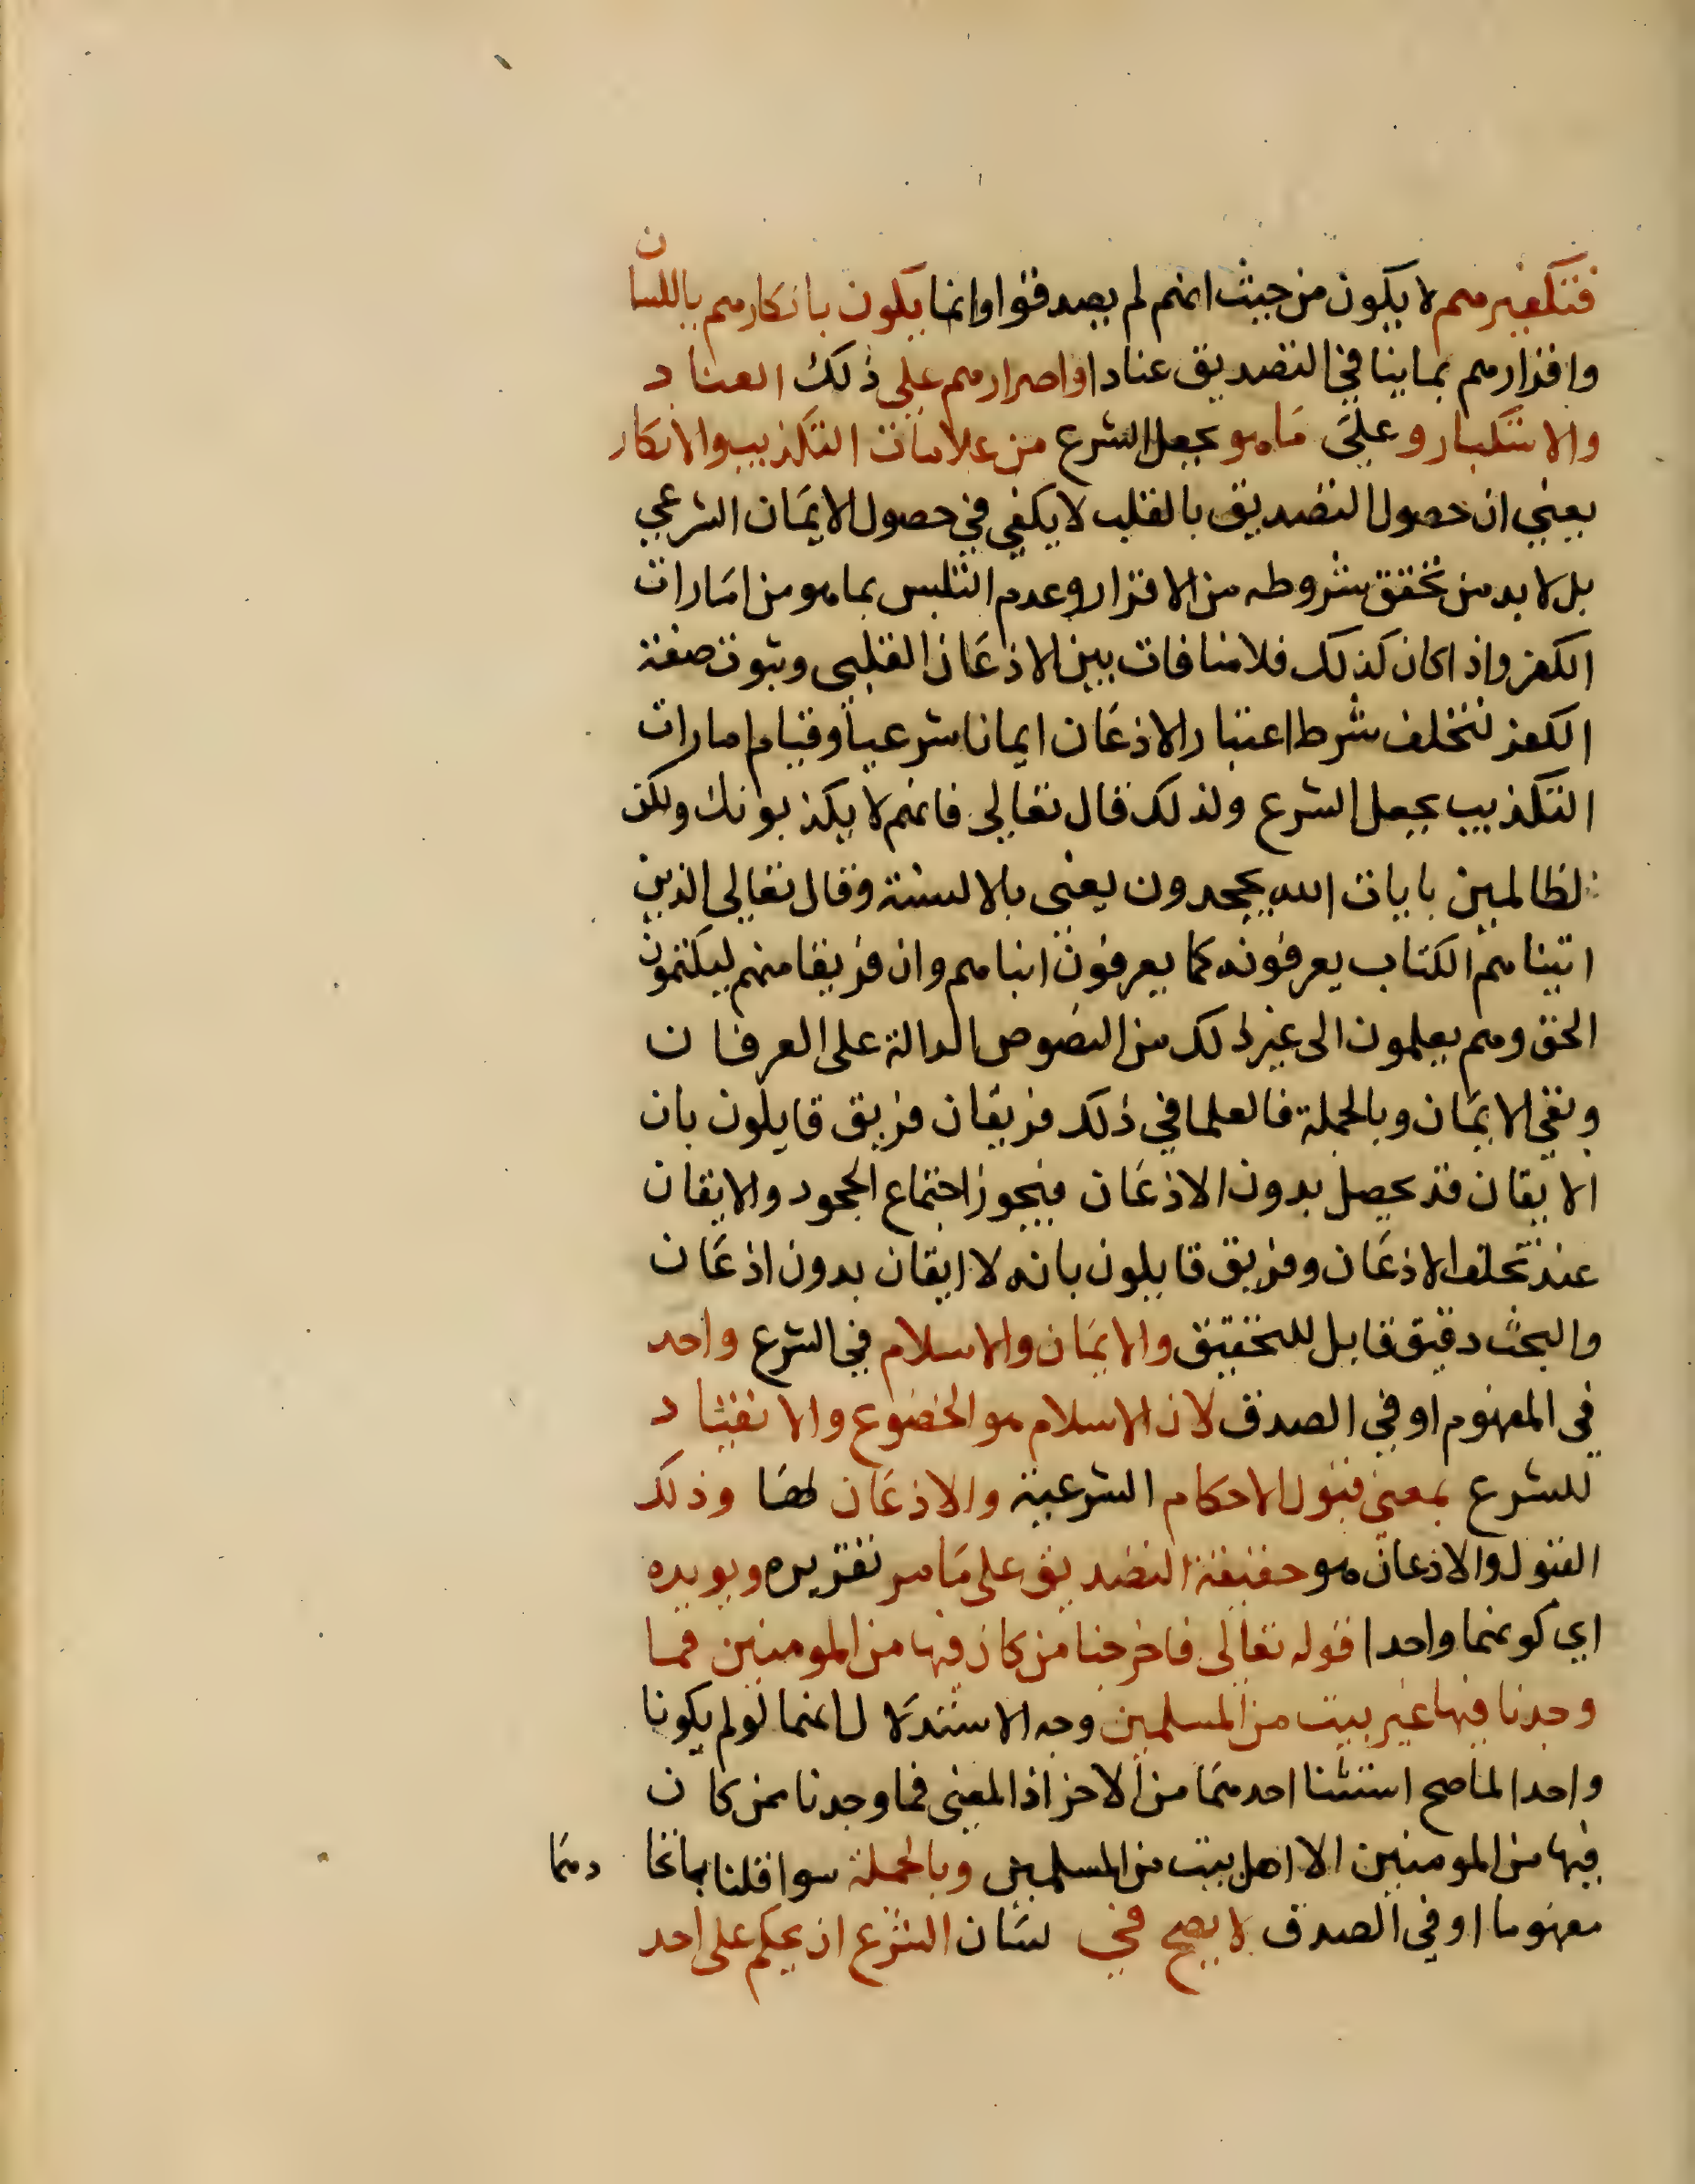 فتكفيرهم لا يكون من حيث انهم لم يصدقوا وانما يكون بانكارهم باللسان
واقرارهم بما ينافي التصديق عنادا واصرارهم على ذلك العناد
والاستكبار وعلى ما هو بجعل الشرع من علامات التكذيب والانكار
يعني ان حصول التصديق بالقلب لا يكفي في حصول الايمان الشرعي
بل لا بد من تحقق شروطه من الاقرار وعدم التلبس بما هو من امارات
الكفر واذا كان كذلك فلا منافات بين الاذعان القلبي وثبوت صفة
الكفر لتخلف شرط اعتبار الاذعان ايمانا شرعيا وقيام امارات
التكذيب بجعل الشرع ولذلك قال تعالى فانهم لا يكذبونك ولكن
الظالمين بايات الله يجحدون يعني بالالسنة وقال تعالى الذين
اتيناهم الكتاب يعرفونه كما يعرفون ابناهم وان فريقا منهم ليكتمون
الحق وهم يعلمون الى غير ذلك من النصوص الدالة على العرفان
ونفي الايمان وبالجملة فالعلما في ذلك فريقان فريق قايلون بان
الايقان قد يحصل بدون الاذعان فيجوز اجتماع الجحود والايقان
عند تخلف الاذعان وفريق قايلون بانه لا ايقان بدون اذعان
والبحث دقيق قابل للتحقيق والايمان والاسلام في الشرع واحد
في المفهوم او في الصدق لان الاسلام هو الخضوع والانقياد
للشرع بمعنى قبول الاحكام الشرعية والاذعان لها وذلك
القبول والاذعان هو حقيقة التصديق على ما مر تقريره ويويده
اي كونهما واحدا قوله تعالى فاخرجنا من كان فيها من المومنين فما
وجدنا فيها غير بيت من المسلمين وجه الاستدلال انهما لو لم يكونا
واحدا لما صح استثنا احدهما من الاخر اذ المعنى فما وجدنا ممن كان
فيها من المومنين الا اهل بيت من المسلمين وبالجملة سوا قلنا باتحادهما
مفهوما او في الصدق لا يصح في لسان الشرع ان يحكم على احد